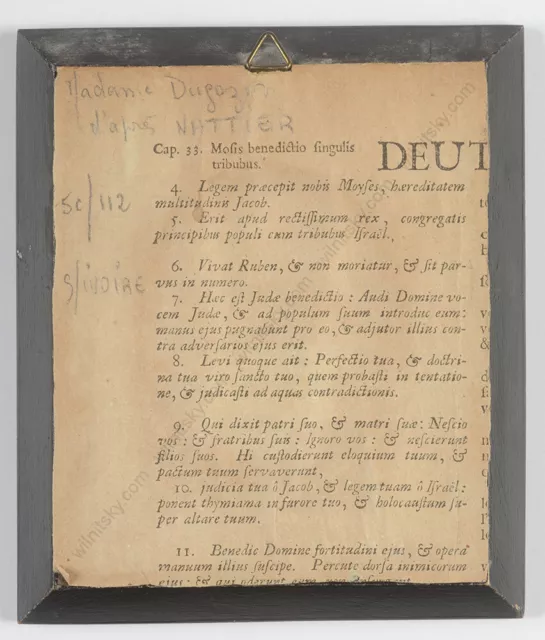 Madame Dugazon
d'après NATTIER
Cap. 33. Mosis benedictio singulis
tribubus.
DEUT
5c/112
s/ivoire
4. Legem præcepit nobis Moyses, hæreditatem
multitudinis Jacob.
5. Erit apud rectissimum rex, congregatis
principibus populi cum tribubus Israël.
6. Vivat Ruben, & non moriatur, & sit par-
vus in numero.
7. Hæc est Judæ benedictio: Audi Domine vo-
cem Judæ, & ad populum suum introduc eum:
manus ejus pugnabunt pro eo, & adjutor illius con-
tra adversarios ejus erit.
8. Levi quoque ait: Perfectio tua, & doctri-
na tua viro sancto tuo, quem probasti in tentatio-
ne, & judicasti ad aquas contradictionis.
9. Qui dixit patri suo, & matri suæ: Nescio
vos: & fratribus suis: Ignoro vos: & nescierunt
filios suos. Hi custodierunt eloquium tuum, &
pactum tuum servaverunt,
10. judicia tua ô Jacob, & legem tuam ô Israël:
ponent thymiama in furore tuo, & holocaustum su-
per altare tuum.
11. Benedic Domine fortitudini ejus, & opera
manuum illius suscipe. Percute dorsa inimicorum
ejus: & qui oderunt eum, non consurgant.
wilnitsky.com